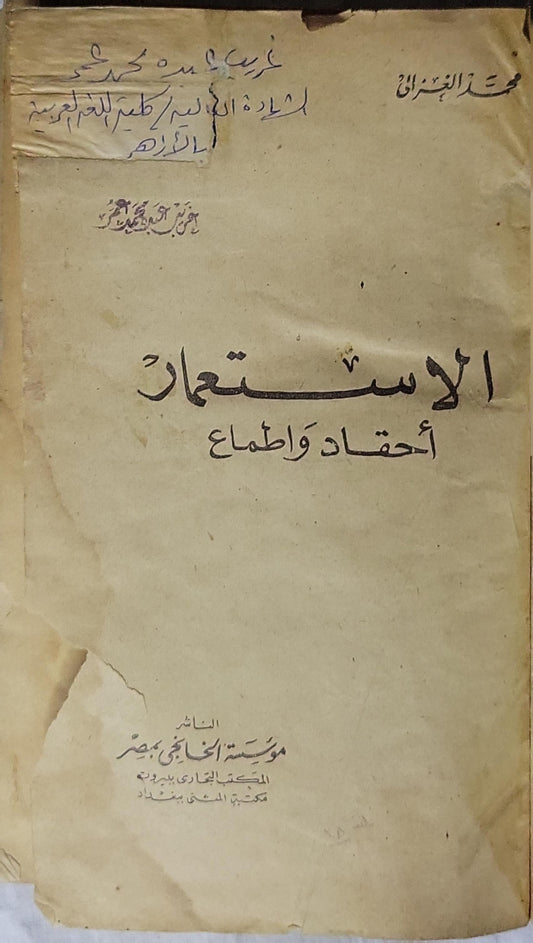 محمد الغزالى
غريب عبده محمد عمر
الشهادة العالية / كلية اللغة العربية
بالأزهر
غريب عبده محمد عمر
الاستعمار
أحقاد وَاطماع
الناشر
مؤسسة الخانجى بمصر
المكتب التجارى ببيروت
مكتبة المثنى ببغداد